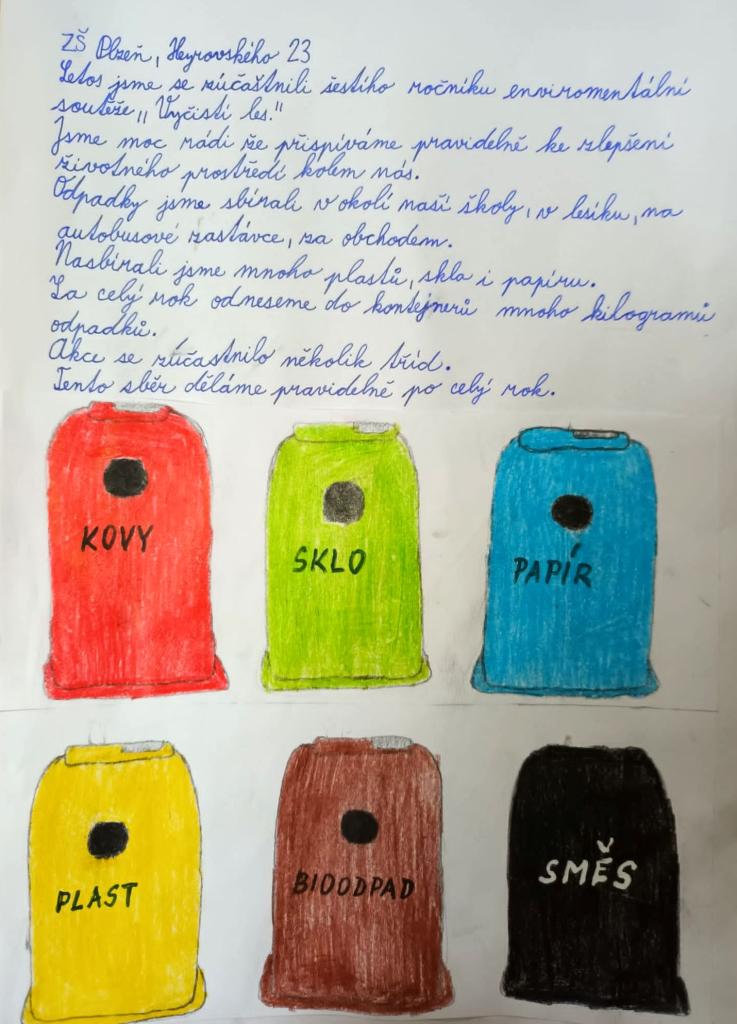 ZŠ Plzeň, Heyrovského 23
Letos jsme se zúčastnili šestího ročníku enviromentální
soutěže „Vyčistí les."
Jsme moc rádi že přispíváme pravidelně ke zlepšení
životného prostředí kolem nás.
Odpadky jsme sbírali v okolí naší školy, v lesíku, na
autobusové zastávce, za obchodem.
Nasbírali jsme mnoho plastů, skla i papíru.
Za celý rok odneseme do kontejnerů mnoho kilogramů
odpadků.
Akce se zúčastnilo několik tříd.
Tento sběr děláme pravidelně po celý rok.
KOVY
SKLO
PAPÍR
PLAST
BIOODPAD
SMĚS